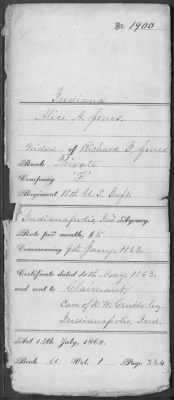 No. 1900
Indiana
Alice A. Jones
Widow of Richard F. Jones
Rank Private
Company "F"
Regiment 18th U.S. Inft
Indianapolis, Ind Agency.
Rate per month, $8
Commencing 9th Jany. 1863.
Certificate dated 20th May 1863.
and sent to Claimant,
Care of R. W.
Indianapolis, Ind.
Act 14th July, 1862.
Book A Vol. 1 Page 334